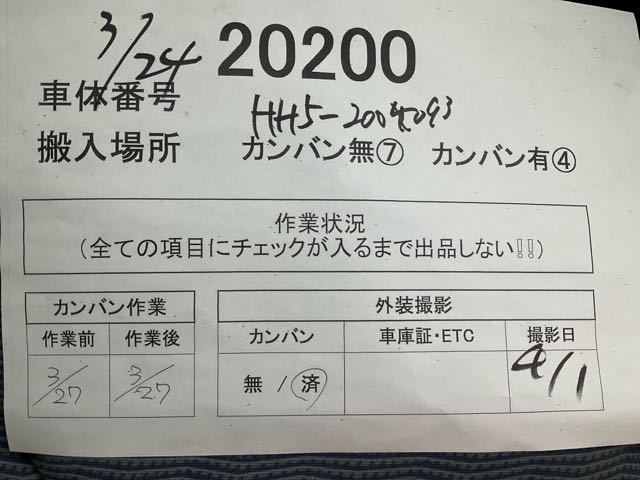 3/24 20200
車体番号 HH5-2004093
搬入場所 カンバン無⑦ カンバン有④
作業状況
(全ての項目にチェックが入るまで出品しない!!)
カンバン作業 外装撮影
作業前 作業後 カンバン 車庫証・ETC 撮影日
3/27 3/27 無 / 済 4/1